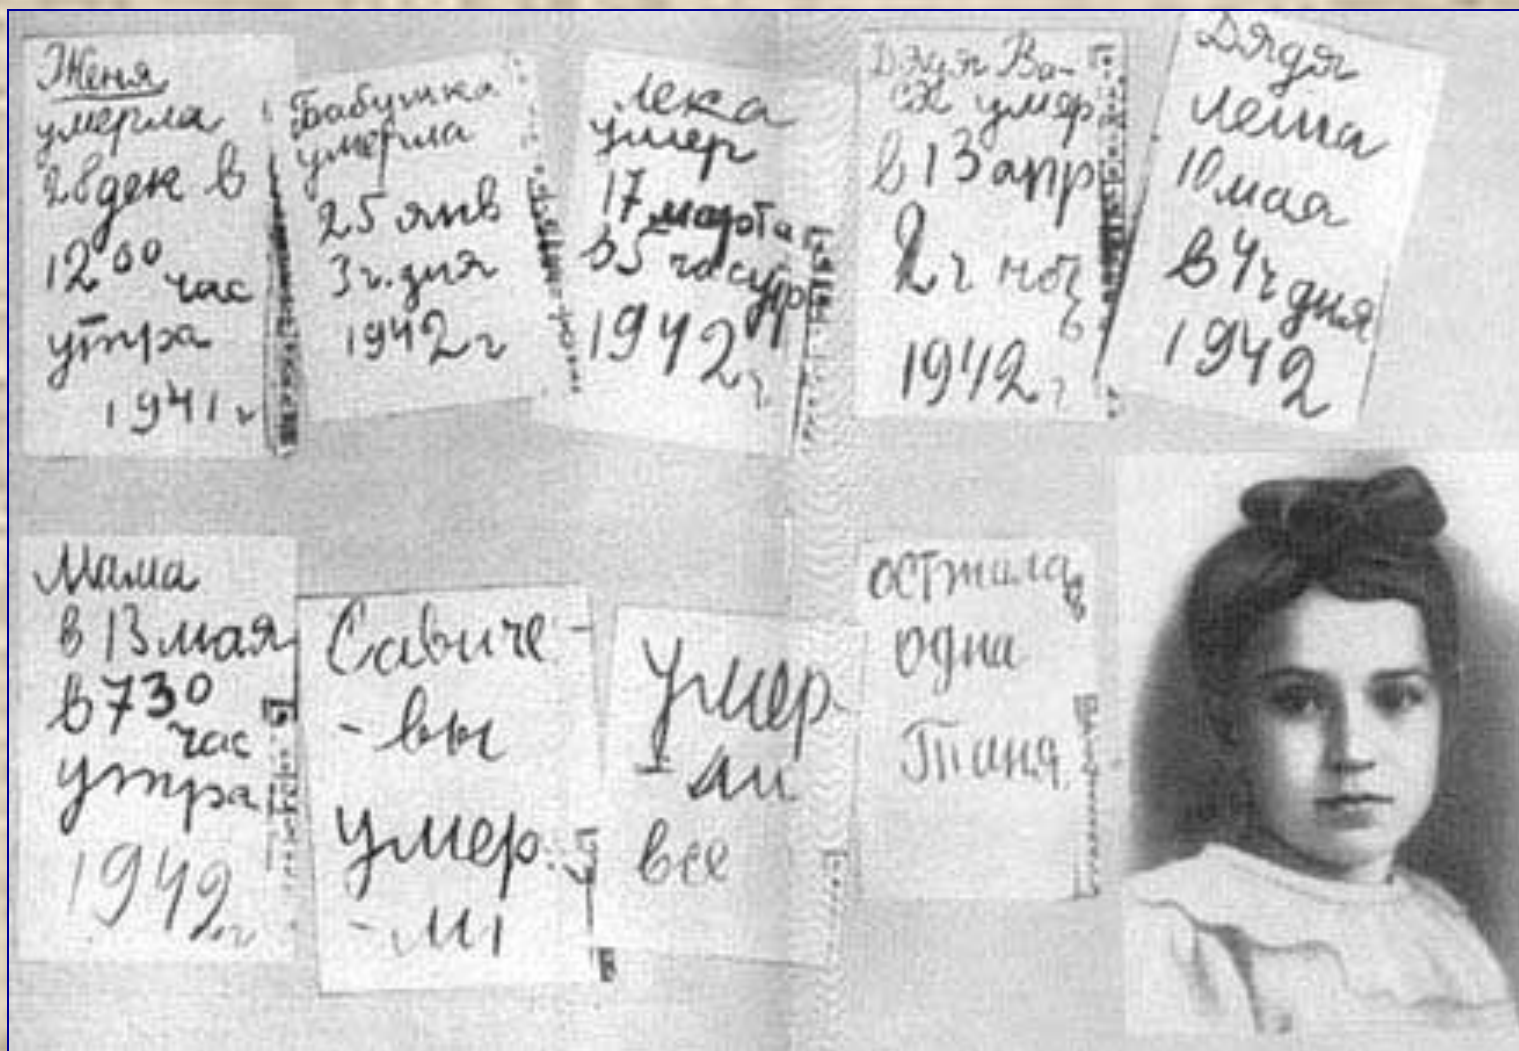 Женя
умерла
28 дек в
12 00 час
утра
1941 г
Бабушка
умерла
25 янв
3 ч. дня
1942 г
Лека
умер
17 марта
в 5 час утр
1942 г
Дядя Ва-
ся умер
в 13 апр
2 ч ночь
1942 г
Дядя
Леша
10 мая
в 4 ч дня
1942
Мама
в 13 мая
в 730
час
утра
1942 г
Савиче-
-вы
умер
-ли
Умер
-ли
все
осталась
одна
Таня